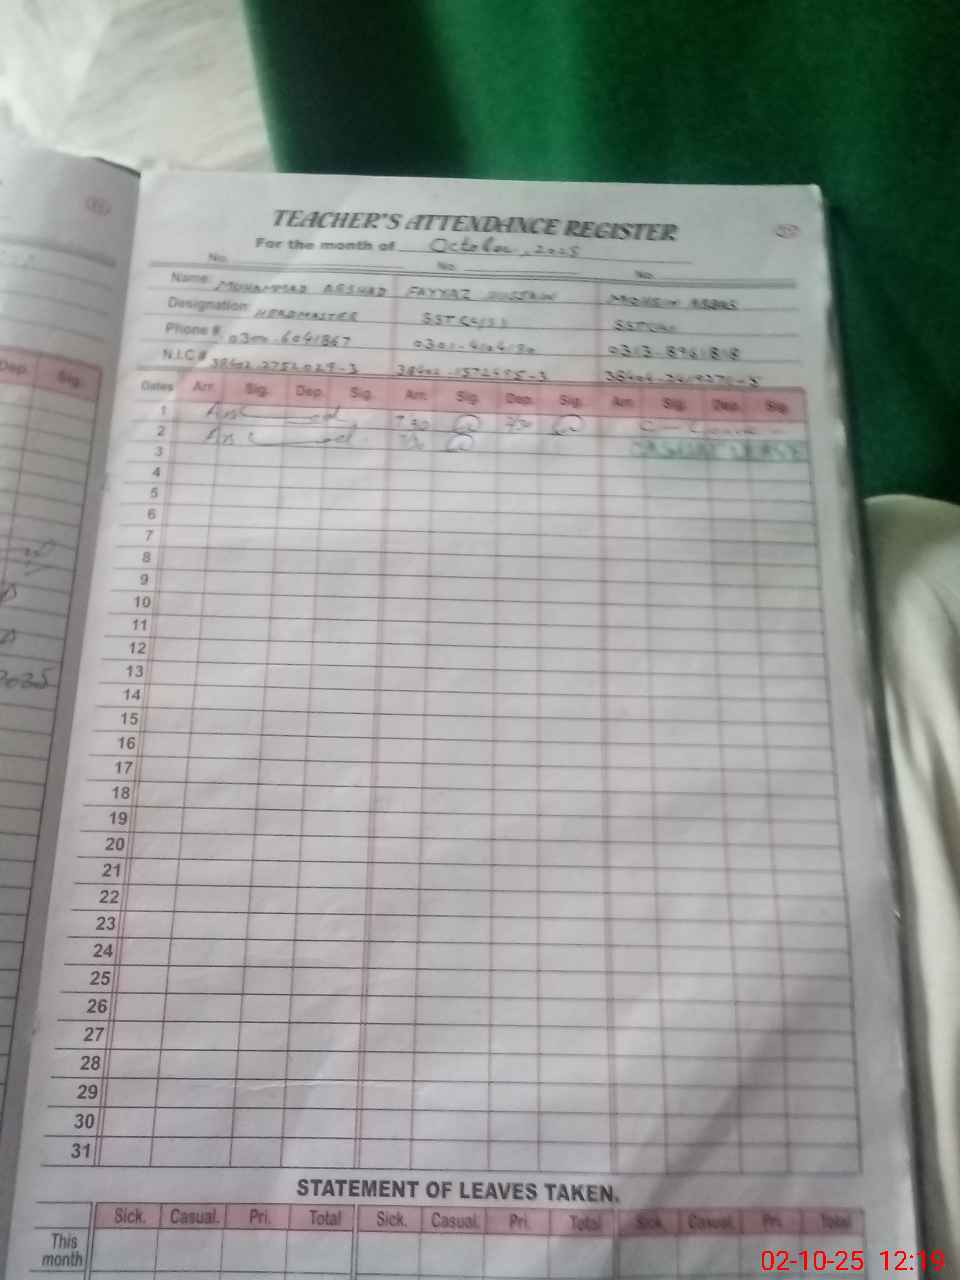 TEACHER'S ATTENDANCE REGISTER
For the month of October, 2025
No. No. No.
Name: MUHAMMAD ARSHAD FAYYAZ HUSSAIN MOHSIN ABBAS
Designation HEADMASTER SST SST
Phone #: 0300-6041867 0301- 0313-8961818
N.I.C #
Dates Arr. Sig. Dep. Sig. Arr. Sig. Dep. Sig. Arr. Sig. Dep. Sig.
1 7:30 C- Leave -
2 CASUAL LEAVE
3
4
5
6
7
8
9
10
11
12
13
14
15
16
17
18
19
20
21
22
23
24
25
26
27
28
29
30
31
STATEMENT OF LEAVES TAKEN.
Sick. Casual. Pri. Total Sick. Casual. Pri. Total Sick. Casual. Pri. Total
This
month
Dep. Sig.
2025
02-10-25 12:19